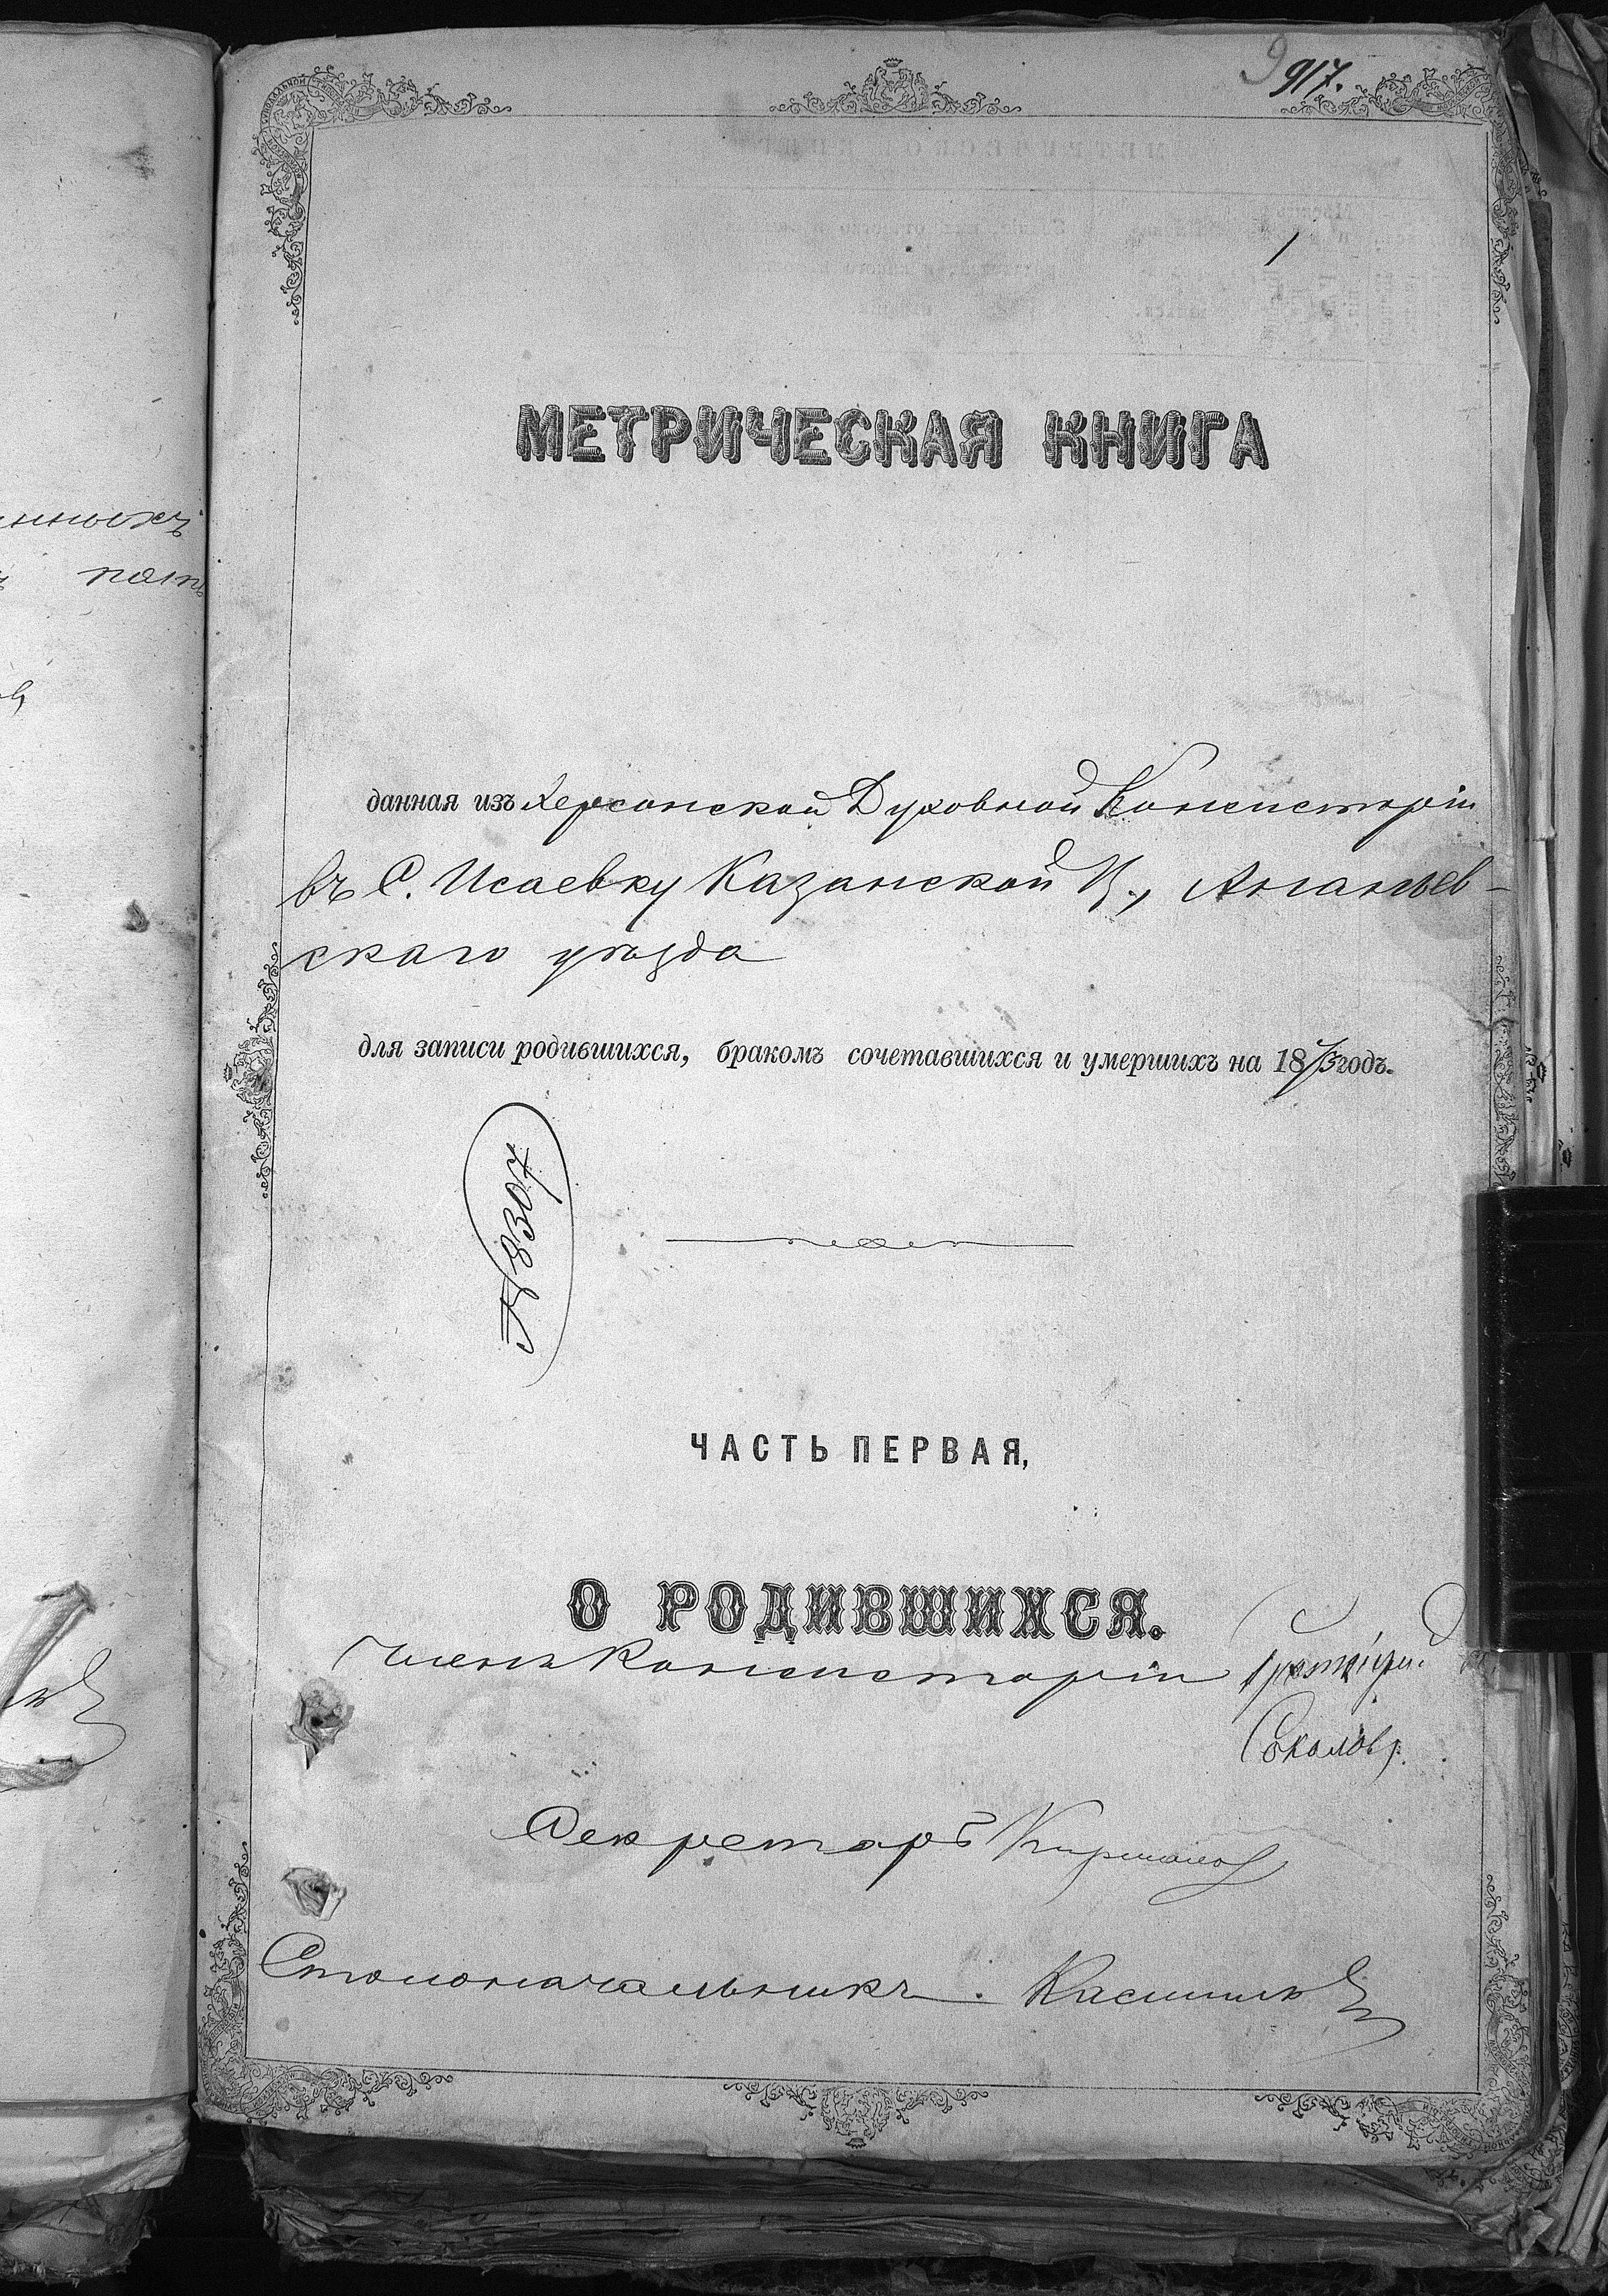 917.
1
МЕТРИЧЕСКАЯ КНИГА
данная изъ Херсонской Духовной Консисторіи
въ С. Исаевку Казанской Ц., Ананьев-
скаго уѣзда
для записи родившихся, бракомъ сочетавшихся и умершихъ на 1873 годъ.
№ 8307
ЧАСТЬ ПЕРВАЯ,
О РОДИВШИХСЯ.
Членъ Консисторіи
Соколовъ.
Секретарь
Столоначальникъ.